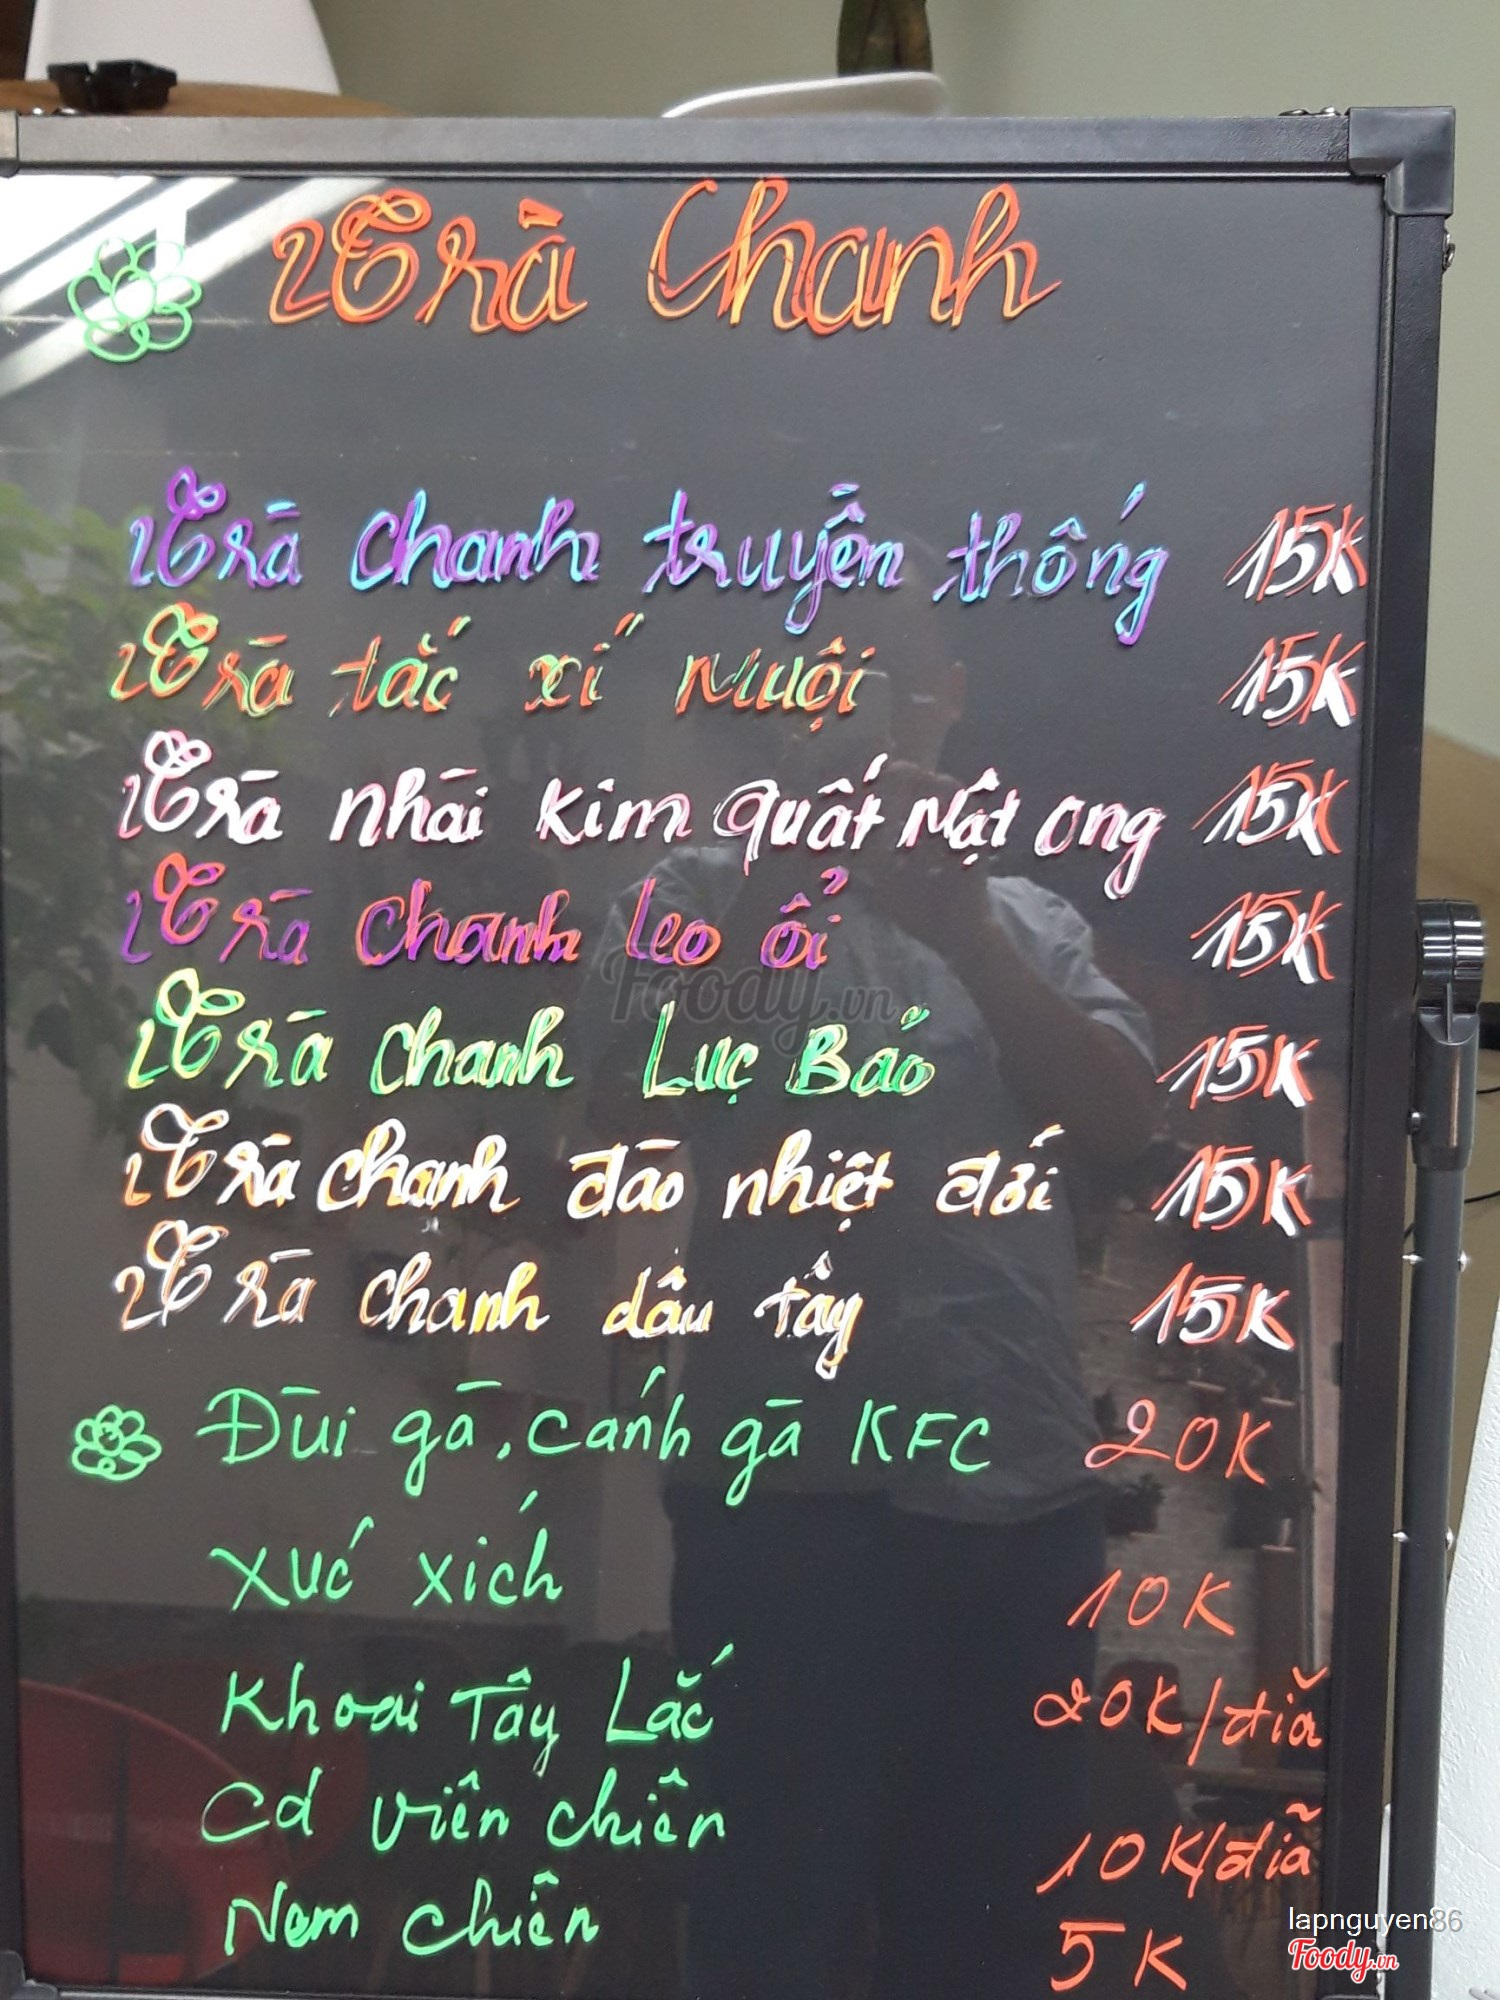 Trà Chanh
Trà chanh truyền thống 15K
Trà tắc xí muội 15K
Trà nhài kim quất mật ong 15K
Trà chanh leo ổi 15K
Foody.vn
Trà chanh Lục Bảo 15K
Trà chanh đào nhiệt đới 15K
Trà chanh dâu tây 15K
Đùi gà, cánh gà KFC 20K
Xúc xích 10K
Khoai Tây Lắc 20K/đĩa
Cá viên chiên 10K/đĩa
Nem chiên 5K
lapnguyen86
Foody.vn